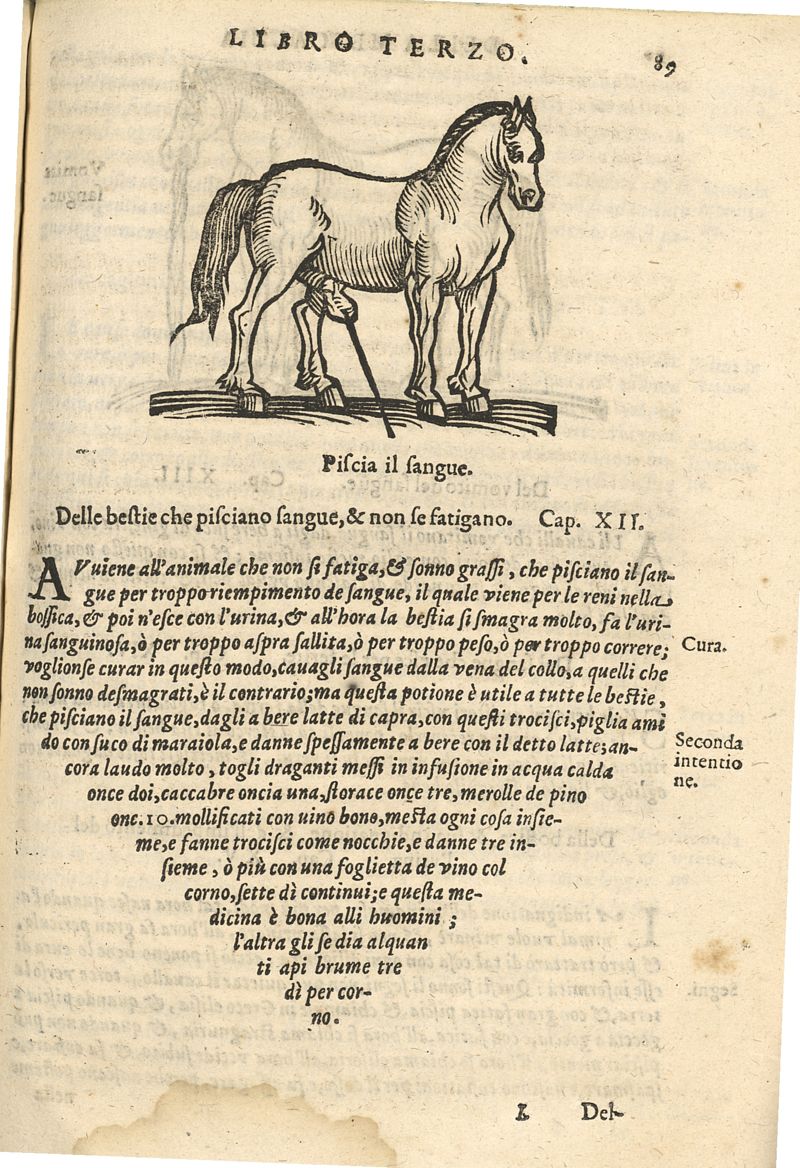 LIBRO TERZO.
89
Piſcia il ſangue.
Delle beſtie che piſciano ſangue, & non ſe fatigano. Cap. XII.
AVuiene all'animale che non ſi fatiga, & ſonno graſſi, che piſciano il ſan-
gue per troppo riempimento de ſangue, il quale viene per le reni nella
boſſica, & poi n'eſce con l'urina, & all'hora la beſtia ſi ſmagra molto, fa l'uri-
na ſanguinoſa, ò per troppo aſpra ſallita, ò per troppo peſo, ò per troppo correre;
Cura.
voglionſe curar in queſto modo, cauagli ſangue dalla vena del collo, a quelli che
non ſonno deſmagrati, è il contrario; ma queſta potione è utile a tutte le beſtie,
che piſciano il ſangue, dagli a bere latte di capra, con queſti trociſci, piglia ami
do con ſuco di maraiola, e danne ſpeſſamente a bere con il detto latte; an-
Seconda
intentio
ne.
cora laudo molto, togli draganti meſſi in infuſione in acqua calda
once doi, caccabre oncia una, ſtorace once tre, merolle de pino
onc. 10. mollificati con uino bono, meſta ogni coſa inſie-
me, e fanne trociſci come nocchie, e danne tre in-
ſieme, ò più con una foglietta de vino col
corno, ſette dì continui; e queſta me-
dicina è bona alli huomini;
l'altra gli ſe dia alquan
ti api brume tre
dì per cor-
no.
L Del-